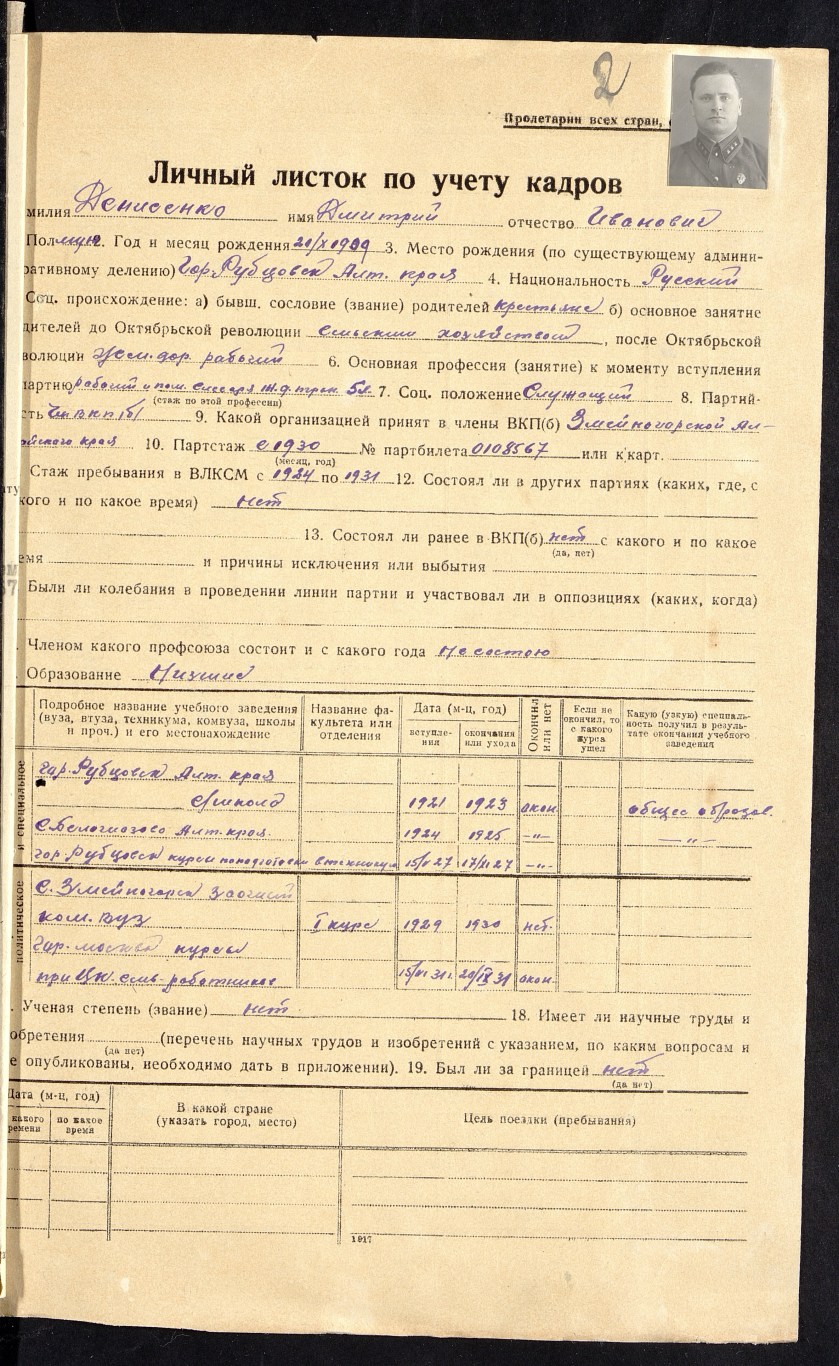 2
Пролетарии всех стран,
Личный листок по учету кадров
милия Денисенко имя Дмитрий отчество Иванович
Пол муж. 2. Год и месяц рождения 20/X 1909 3. Место рождения (по существующему админи-
ративному делению) Гор. Рубцовск Алт. края 4. Национальность Русский
Соц. происхождение: а) бывш. сословие (звание) родителей крестьяне б) основное занятие
дителей до Октябрьской революции сельским хозяйством, после Октябрьской
волюции жел. дор. рабочий 6. Основная профессия (занятие) к моменту вступления
партию рабочий и пом. слесаря ж.д. 5 л. 7. Соц. положение Служащий 8. Партий-
(стаж по этой профессии)
сть Чл. ВКП(б) 9. Какой организацией принят в члены ВКП(б) Змейногорской Ал-
айского края 10. Партстаж с 1930 № партбилета 0108567 или к/карт.
(месяц, год)
Стаж пребывания в ВЛКСМ с 1924 по 1931 12. Состоял ли в других партиях (каких, где, с
кого и по какое время) нет
13. Состоял ли ранее в ВКП(б) нет с какого и по какое
(да, нет)
емя и причины исключения или выбытия
Были ли колебания в проведении линии партии и участвовал ли в оппозициях (каких, когда)
Членом какого профсоюза состоит и с какого года не состою
Образование Низшее
Подробное название учебного заведения (вуза, втуза, техникума, комвуза, школы и проч.) и его местонахождение
Название факультета или отделения
Дата (м-ц, год)
вступления
окончания или ухода
Окончил или нет
Если не окончил, то с какого курса ушел
Какую (узкую) специальность получил в результате окончания учебного заведения
и специальное
гор. Рубцовск Алт. края
школа 1921 1923 окон. общее образов.
с. Белоглазово Алт. края. 1924 1925 -„- -„-
гор. Рубцовск курсы по подготовки в техникум 15/II 27 17/VI 27 -„-
политическое
с. Змейногорск Заочный
ком. вуз I курс 1929 1930 нет.
гор. Москва курсы
при ЦК. сель-работников 15/VI 31 20/IX 31 окон.
Ученая степень (звание) нет. 18. Имеет ли научные труды и
обретения (перечень научных трудов и изобретений с указанием, по каким вопросам и
(да нет)
е опубликованы, необходимо дать в приложении). 19. Был ли за границей нет
(да нет)
Дата (м-ц, год)
какого ремени
по какое время
В какой стране
(указать город, место)
Цель поездки (пребывания)
1917